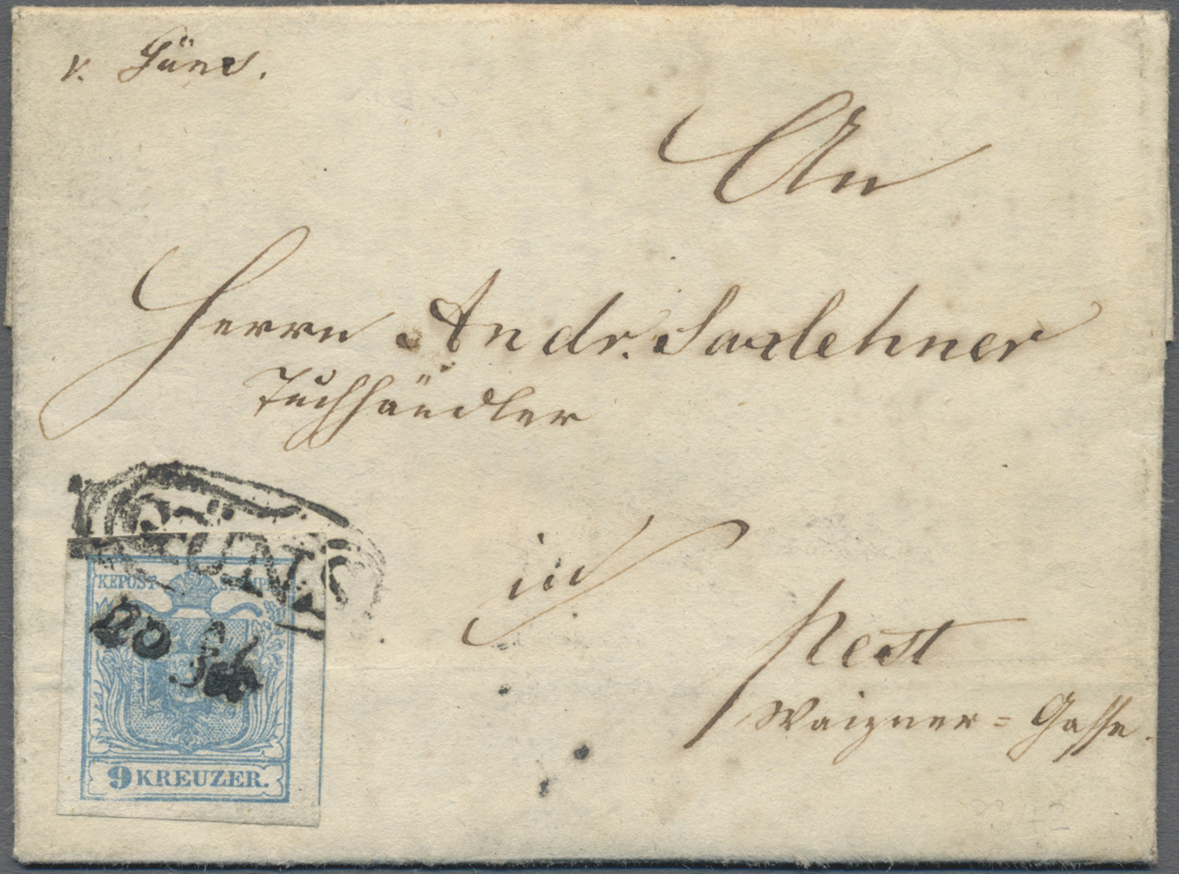 v. Güns.
An
Herrn Andr. Saxlehner
Tuchhändler
in
Pest
Waizner = Gasse.
GÜNS
KKPOST STEMPEL
9 KREUZER.